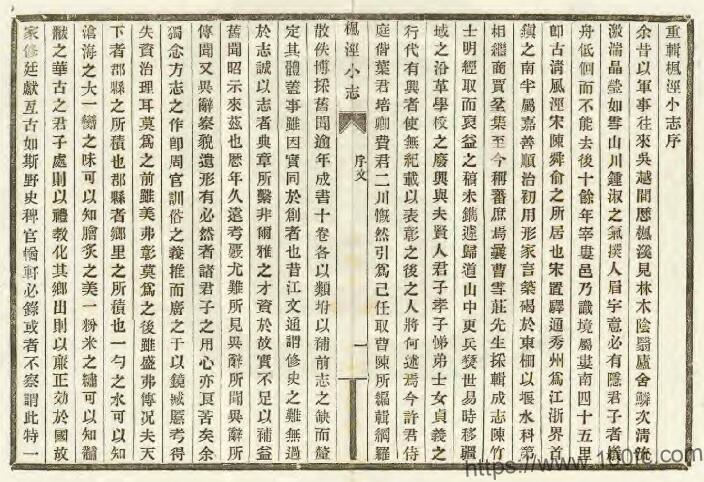 重輯楓涇小志序
余昔以軍事往來吳越間歷楓溪見林木陰翳廬舍鱗次清流
激湍晶瑩如雪山川鍾淑之氣撲人眉宇意必有隱君子者艤
舟低徊而不能去後十餘年宰婁邑乃識境屬婁南四十五里
即古清風涇宋陳舜俞之所居也宋置驛通秀州為江浙界首
鎮之南半屬嘉善順治初用形家言築碣於東柵以堰水科第
相繼商賈粲集至今稱蕃庶焉曩曹雪莊先生採輯成志陳竹
士明經取而裒益之稿未鐫遽歸道山中更兵燹世易時移疆
域之沿革學校之廢興與夫賢人君子孝子悌弟士女貞義之
行代有興者使無紀載以表彰之後之人將何述焉今許君侍
庭偕葉君培卿費君二川慨然引為己任取曹陳所編輯網羅
楓涇小志
序文
一
散佚博採舊聞逾年成書十卷各以類坿以補前志之缺而釐
定其體蓋事雖因實同於創者也昔江文通謂修史之難無過
於志誠以志者典章所繫非爾雅之才資於故實不足以補益
舊聞昭示來茲也歷年久遠考覈尤難所見異辭所聞異辭所
傳聞又異辭察貌遺形有必然者諸君子之用心亦良苦矣余
獨念方志之作即周官訓俗之義推而廣之于以鏡臧慝考得
失資治理耳莫為之前雖美弗彰莫為之後雖盛弗傳況夫天
下者郡縣之所積也郡縣者鄉里之所積也一勺之水可以知
滄海之大一臠之味可以知膾炙之美一粉米之繡可以知黼
黻之華古之君子處則以禮教化其鄉出則以嚴正効於國故
家修廷獻亙古如斯野史稗官輶軒必錄或者不察謂此特一
https://www.160fc.com